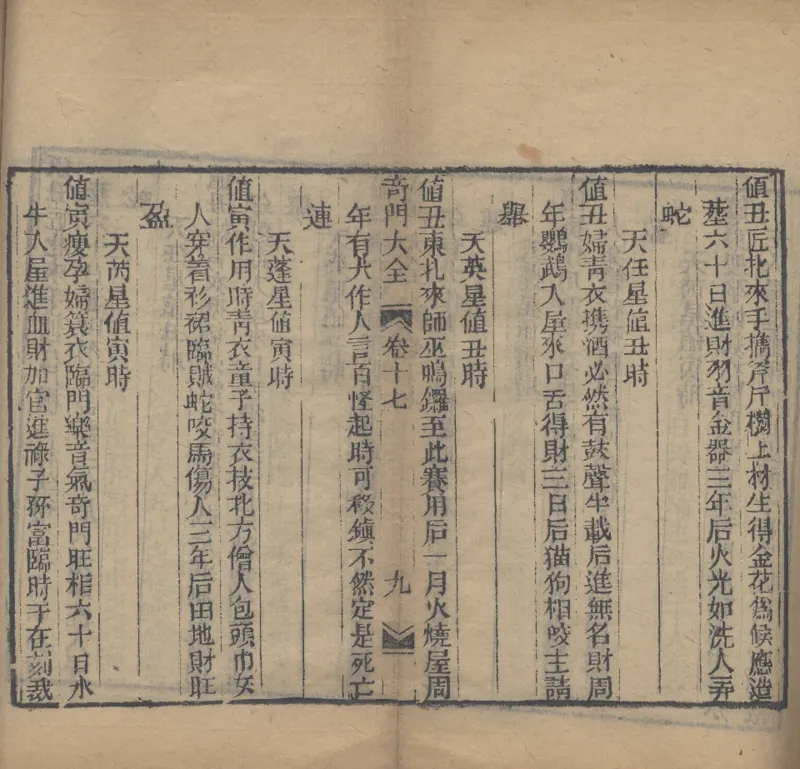 値丑匠北來手擕斧斤樹上材生得金花爲候應造
塟六十日進財羽音金器三年后火光如洗人弄
蛇
天任星値丑時
値丑婦青衣携酒必然有鼓聲半載后進無名財周
年鸚鵡入屋來口舌得財三日后猫狗相咬主請
舉
天英星値丑時
値丑東北來師巫鳴鑼至此賽用后一月火燒屋周
奇門大全 卷十七 九
年有犬作人言百怪起時可殺鎮不然定是死亡
連
天蓬星値寅時
値寅作用時青衣童子持衣技北方僧人包頭巾女
人穿着衫裙臨賊蛇咬馬傷人三年后田地財旺
盈
天芮星値寅時
値寅瘦孕婦簑衣臨門樂音氣奇門旺相六十日水
牛入屋進血財加官進祿子孫富臨時于在刻裁